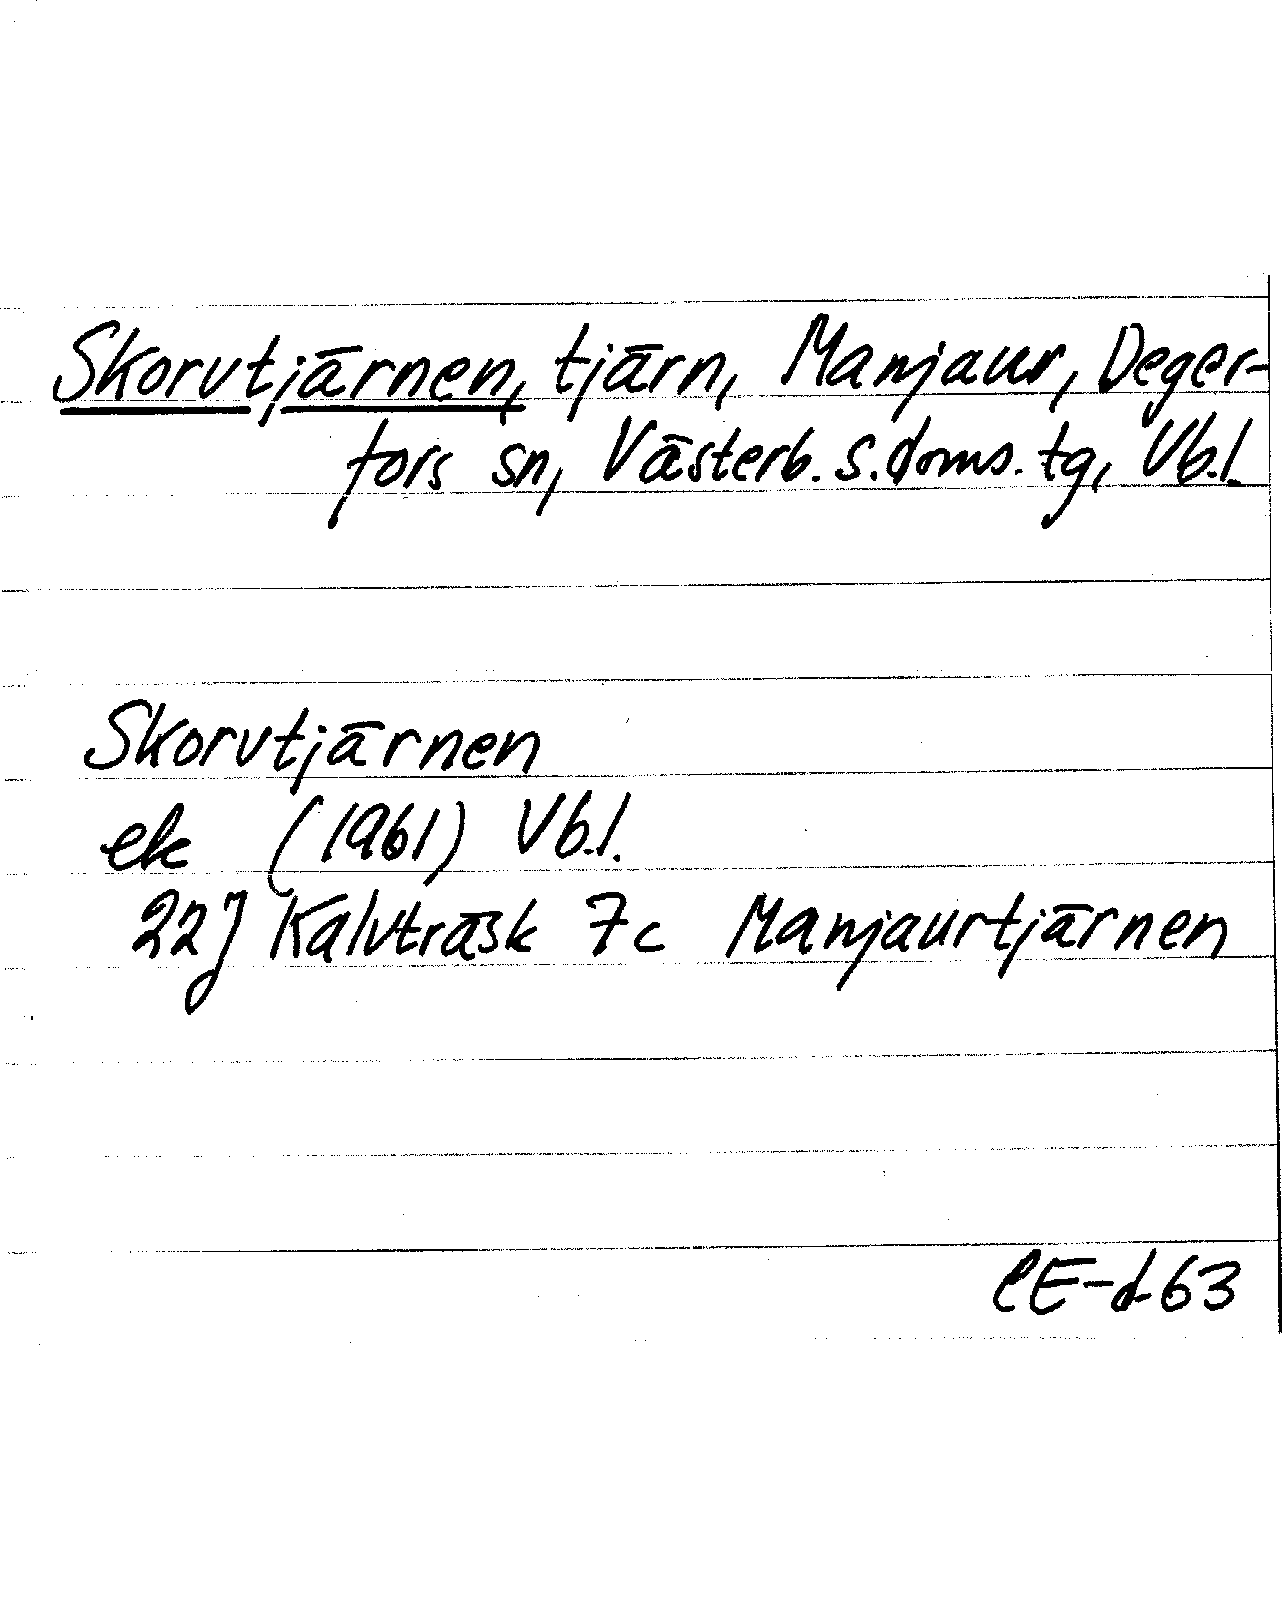 Skorvtjärnen, tjärn, Manjaur, Deger-
fors sn, Västerb. s. doms. tg, Vb.l.
Skorvtjärnen
ek (1961) Vb.l.
22J Kalvträsk 7c Manjaurtjärnen
CE-d 63